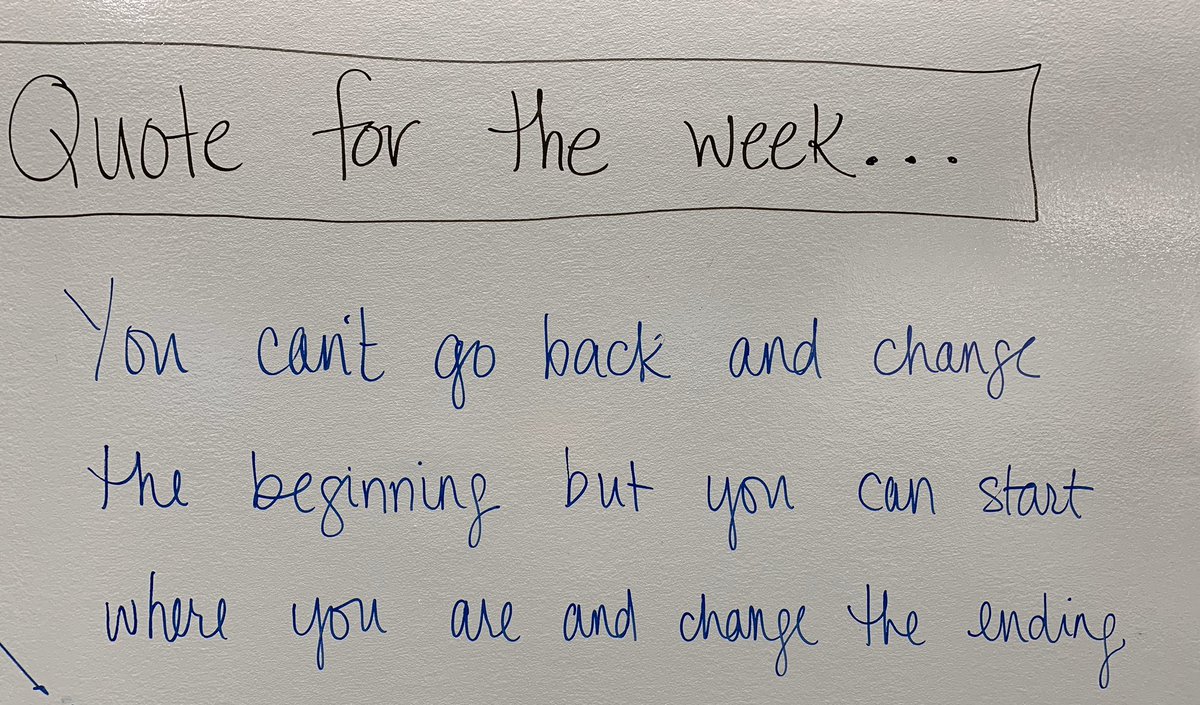 Quote for the week....
You can't go back and change
the beginning but you can start
where you are and change the ending